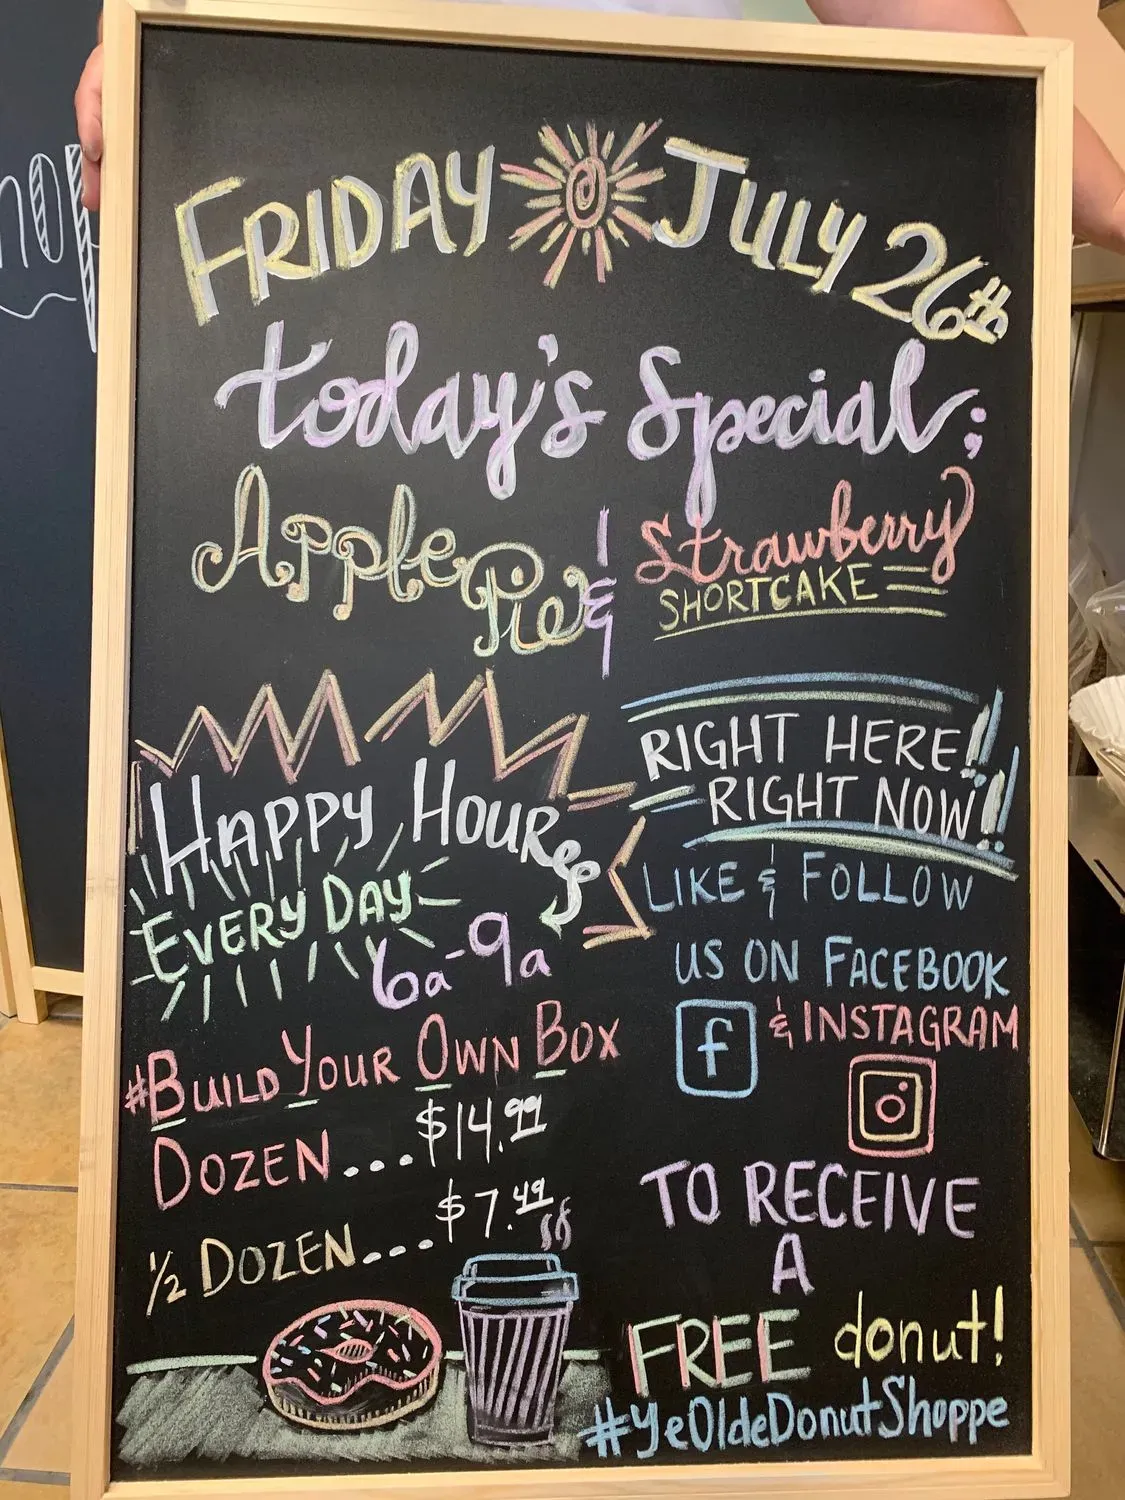 FRIDAY JULY 26th
today's Special:
Apple Pie & Strawberry
SHORTCAKE
HAPPY HOUR
EVERY DAY
6a-9a
#BUILD YOUR OWN BOX
DOZEN...$14.99
1/2 DOZEN...$7.49
RIGHT HERE!!
RIGHT NOW!!
LIKE & FOLLOW
US ON FACEBOOK
f & INSTAGRAM
TO RECEIVE
A
FREE donut!
#YeOldeDonutShoppe